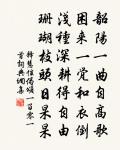 韶陽一曲自高歌
困來一覺和衣倒
淺種深耕得自由
珊瑚枝頭日杲杲
釋慧性偈頌一百零一
首詞典網集